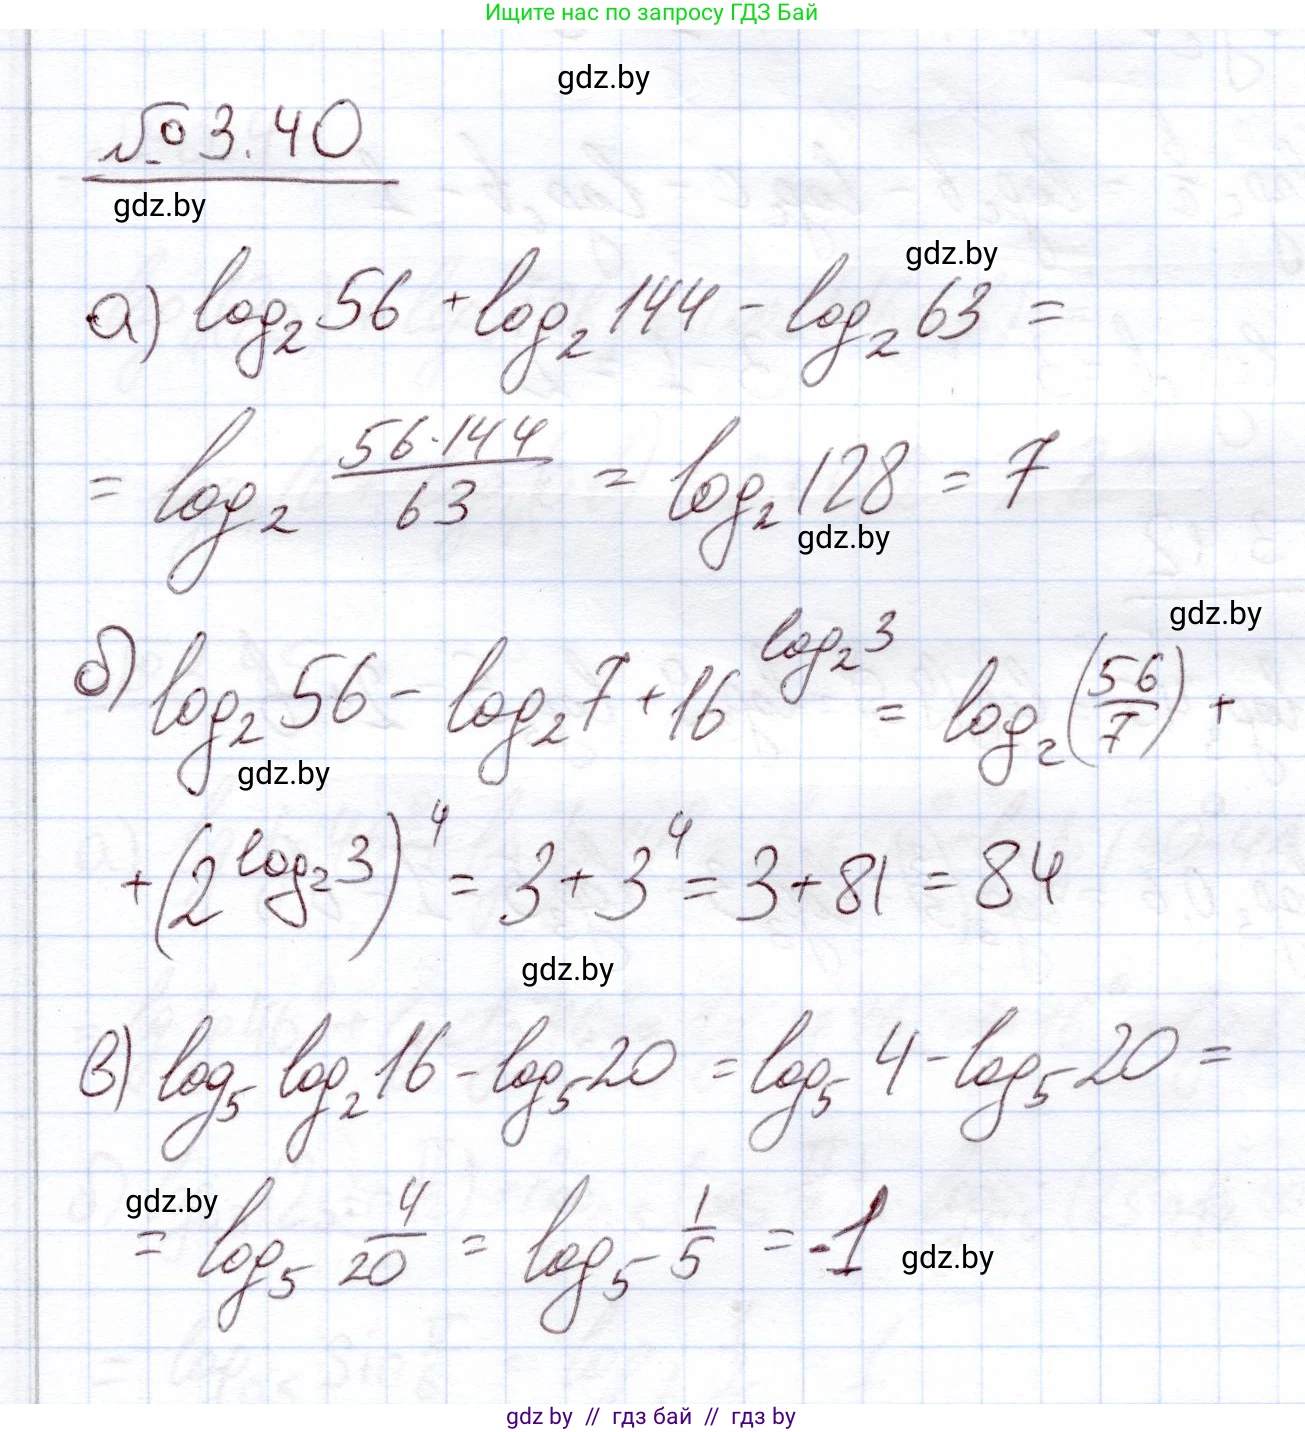 Ищите нас по запросу ГДЗ Бай
gdz.by
№ 3.40
gdz.by
gdz.by
а) log₂ 56 + log₂ 144 - log₂ 63 =
= log₂ (56·144)/63 = log₂ 128 = 7
gdz.by
gdz.by
б) log₂ 56 - log₂ 7 + 16^(log₂ 3) = log₂ (56/7) +
gdz.by
+ (2^(log₂ 3))⁴ = 3 + 3⁴ = 3 + 81 = 84
gdz.by
в) log₅ log₂ 16 - log₅ 20 = log₅ 4 - log₅ 20 =
gdz.by
= log₅ 4/20 = log₅ 1/5 = -1
gdz.by
gdz by // гдз бай // гдз by